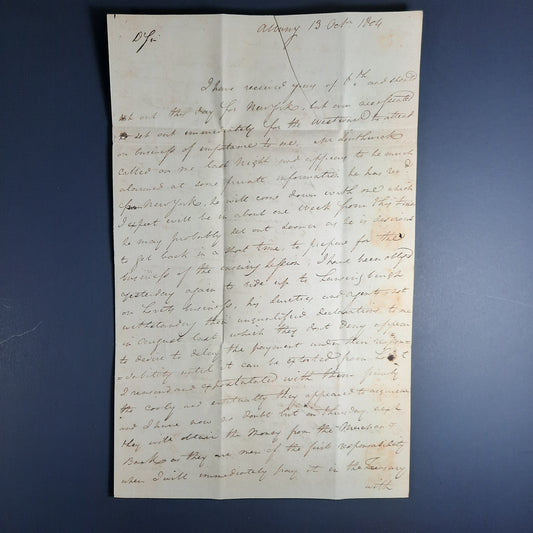 Albany 13 Oct 1804
Dr Sir
I have received yours of 8th and should
set out this day for New York, but am necessitated
to set out immediately for the Westward to attend
on business of importance to me, Mr Southwick
called on me last Night and appears to be much
alarmed at some private information he has recd
from New York, he will come down with me which
I expect will be in about one week from this time
he may probably set out sooner as he is desirous
to get back in a short time, to prepare for the
business of the ensuing session, I have been obliged
yesterday again to ride up to Lansingburgh
on business, his Sureties and agents not
withstanding their unqualified declarations to me
in August last which they dont deny appear
to desire to delay the payment under their respon-
sability until it can be extorted from
I reasoned and expostulated with them
the and eventually they appeared to acquiesce
and I have now no doubt but on Thursday next
they will obtain the Money from the
Bank as they are men of the first responsability
when I will immediately pay it in the Treasury
with